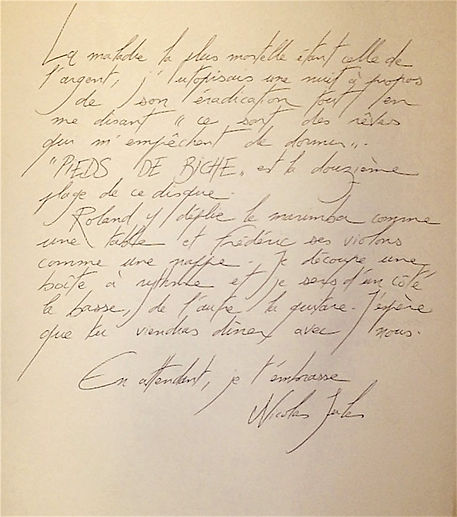 La maladie la plus mortelle étant celle de
l'argent, j'utopisais une nuit à propos
de son éradication tout en
me disant " ce sont des rêves
qui m'empêchent de dormir ".
" PIEDS DE BICHE " est la douzième
plage de ce disque.
Roland y déplie le marimba comme
une table et Frédéric ses violons
comme une nappe. Je découpe une
boîte à rythme et je sers d'un côté
la basse, de l'autre la guitare. J'espère
que tu viendras dîner avec nous.
En attendant, je t'embrasse
Nicolas Jules